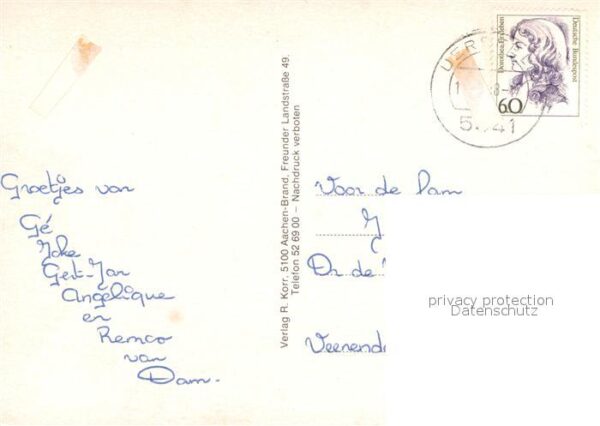 Groetjes van
Gé
Joke
Gert-Jan
Angélique
en
Remco
van
Dam.
Verlag R. Korr, 5100 Aachen-Brand, Freunder Landstraße 49.
Telefon 52 69 00 – Nachdruck verboten
Dorothea Erxleben
Deutsche Bundespost
60
Voor de Fam
privacy protection
Datenschutz